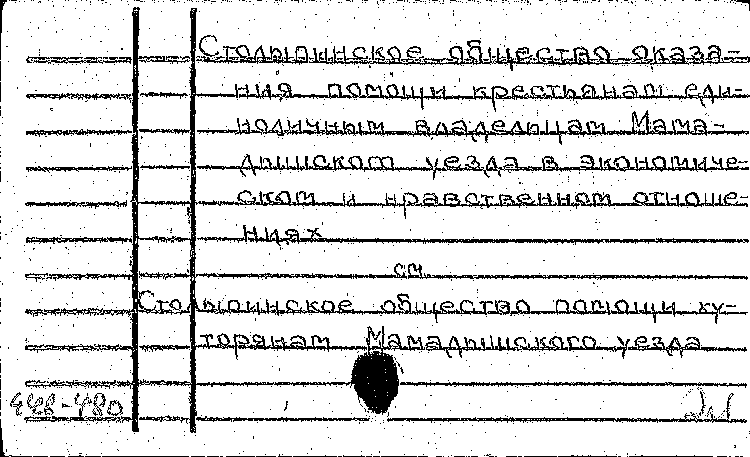 Столыпинское общество оказа-
ния помощи крестьянам еди-
ноличным владельцам Мама-
дышском уезда в экономиче-
ском и нравственном отноше-
ниях
см.
Столыпинское общество помощи ху-
торянам Мамадышского уезда